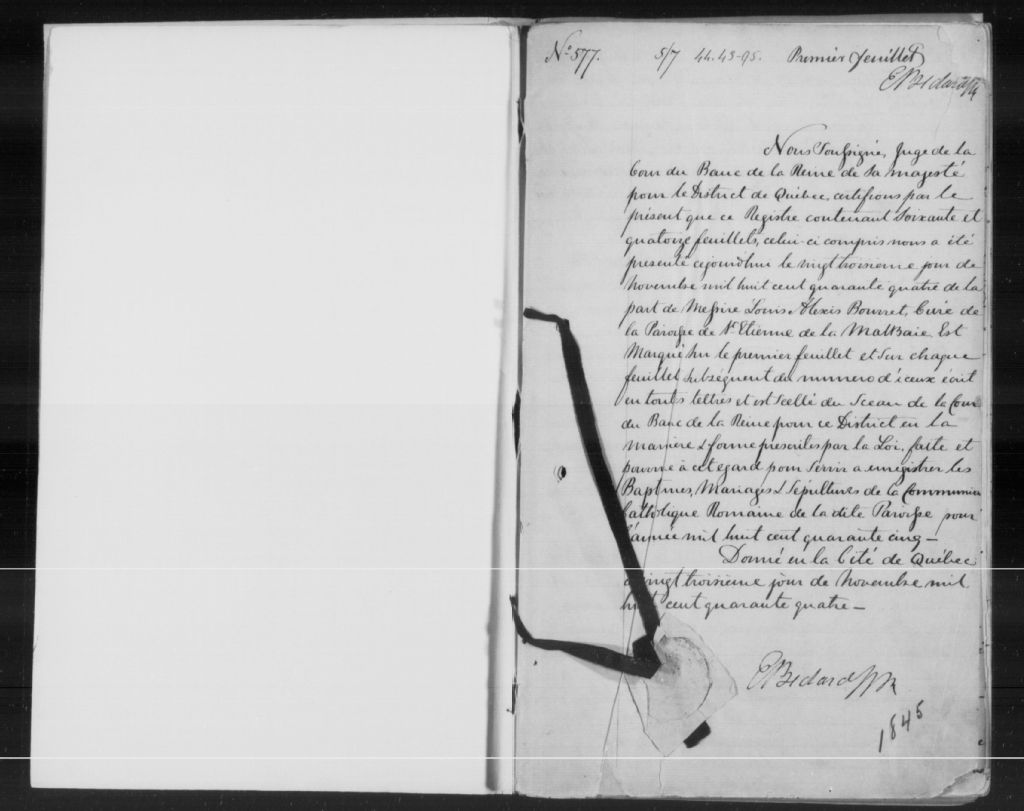 No 577. 5/7 44.43-95. Premier feuillet
E Bedard
Nous Soussigné, Juge de la
Cour du Banc de la Reine de Sa majesté
pour le District de Québec, certifions par le
présent que ce Registre contenant Soixante et
quatorze feuillets, celui-ci compris nous a été
presenté cejourdhui le vingt troisieme jour de
Novembre mil huit cent quarante quatre de la
part de Messire Louis Alexis Bourret, Curé de
la Paroisse de St Etienne de la Malbaie Est
Marqué Sur le premier feuillet et Sur chaque
feuillet Subséquent du numero d'iceux écrit
en toutes lettres et est Scellé du Sceau de la Cour
du Banc de la Reine pour ce District en la
maniere & forme prescrites par la Loi, faite et
pourvue à cet egard pour Servir a enregistrer les
Baptmes, Mariages & Sépultures de la Communion
Catholique Romaine de la dite Paroisse pour
l'année mil huit cent quarante cinq —
Donné en la Cité de Québec
vingt troisieme jour de Novembre mil
huit cent quarante quatre —
E Bedard
1845